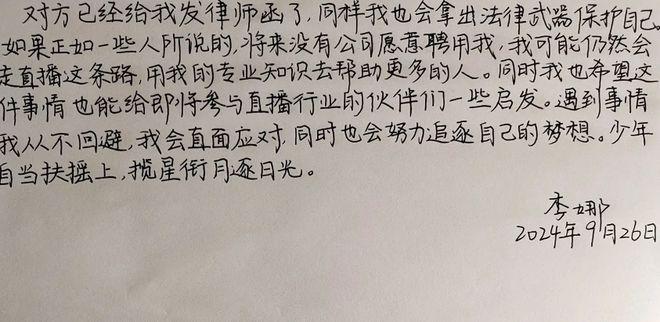 对方已经给我发律师函了,同样我也会拿出法律武器保护自己。
如果正如一些人所说的,将来没有公司愿意聘用我,我可能仍然会
走直播这条路,用我的专业知识去帮助更多的人。同时我也希望这
件事情也能给即将参与直播行业的伙伴们一些启发。遇到事情
我从不回避,我会直面应对,同时也会努力追逐自己的梦想。少年
自当扶摇上,揽星衔月逐日光。
李娜
2024年9月26日